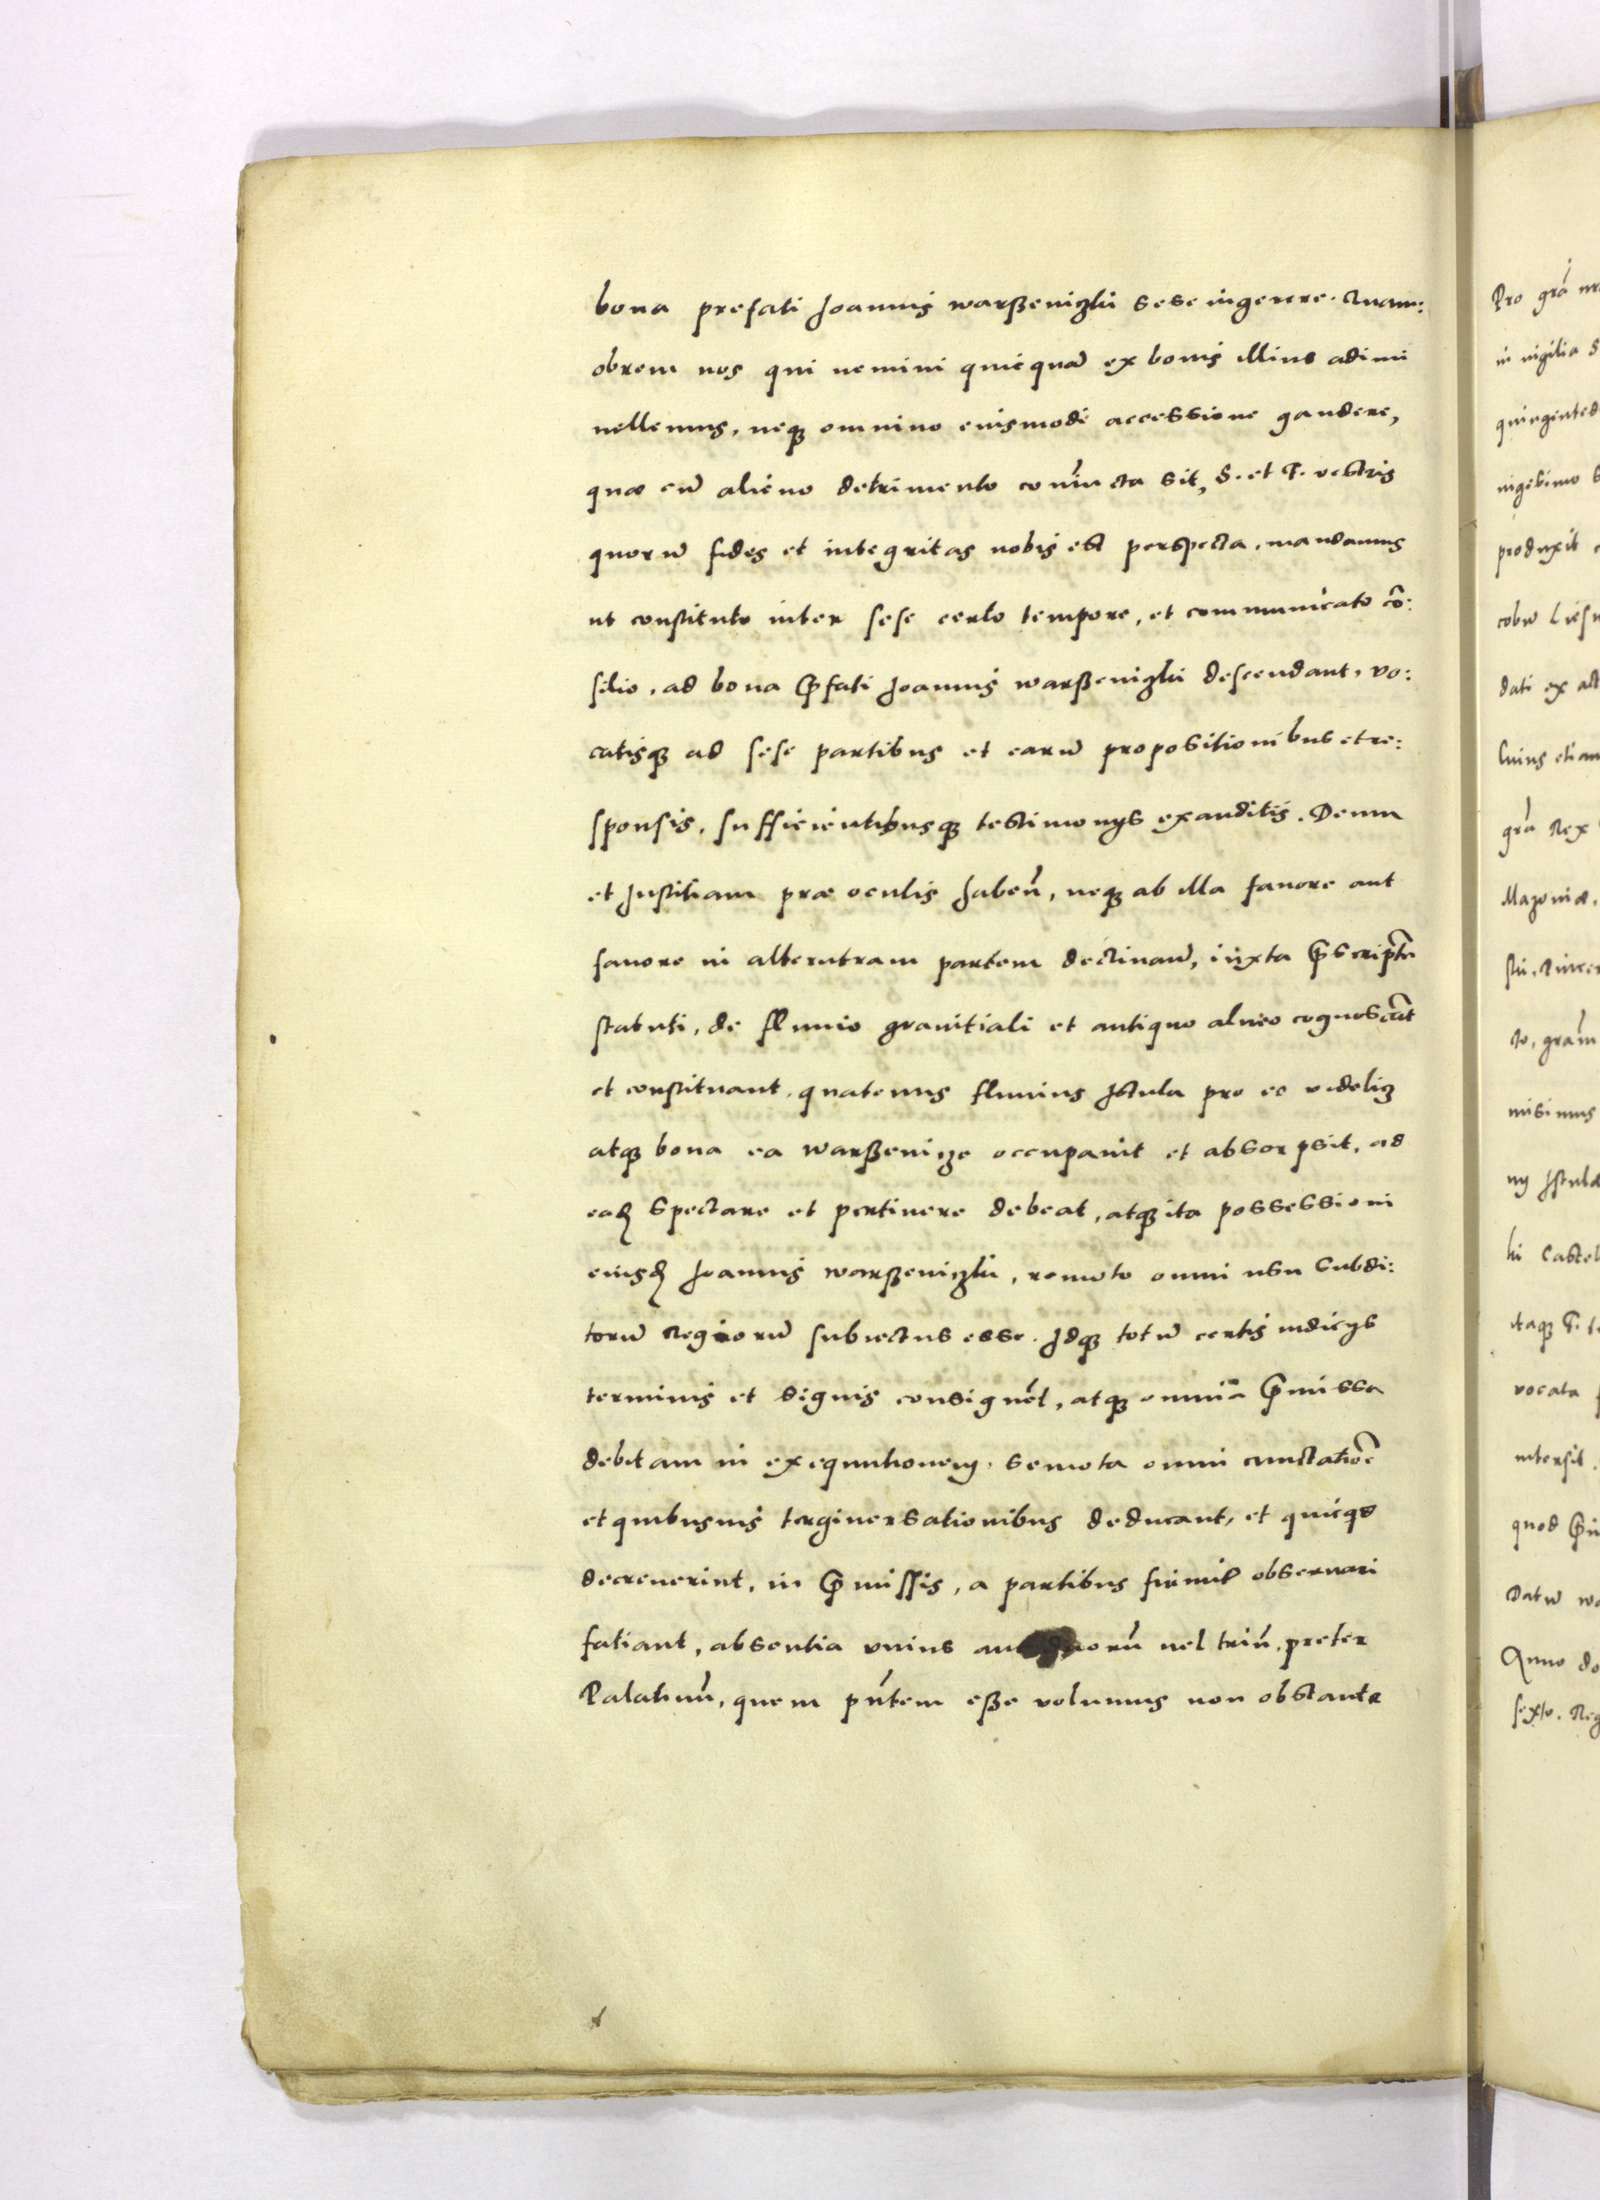 bona prefati Joannis warßeniczkii sese ingerere. Quam:
obrem nos qui nemini quicquā ex bonis illius adimi
vellemus, neqȝ omnino eiusmodi accessione gaudere,
quæ cū alieno detrimento coniūcta sit, S. et F. vestris
quorū fides et integritas nobis est perspecta, mandamus
ut constituto inter sese certo tempore, et communicato cō:
silio, ad bona p̄fati Joannis warßeniczkii descendant, vo:
catisqȝ ad sese partibus et earū propositionibus et re:
sponsis, sufficientibusqȝ testimonijs exauditis. Deum
et Justitiam præ oculis habeñ, neqȝ ab illa favore aut
favore in alterutram partem declinañ, iuxta p̄scripta
statuti, de fluvio granitiali et antiquo alveo cognoscāt
et constituant, quatenus fluvius Istula pro eo videliȝ
atqȝ bona ea warßenicze occupavit et absorpsit, ad
eadē spectare et pertinere debeat, atqȝ ita possessioni
eiusdē Joannis warßeniczkii, remoto omni usu subdi:
torū Regiorū subiectus esse. Idqȝ totū certis indicijs
terminis et signis consignēt, atqȝ omnia p̄missa
debitam in exequutionem, semota omni cunctatiōe
et quibusvis tergiversationibus deducant, et quicqd
decreverint, in p̄missis, a partibus firmit observari
fatiant, absentia unius aut duorū vel triū, preter
Palatinū, quem pn̄tem eße volumus non obstante
Pro grā
in vigilia
nigesimo
produxit
dati ex
huius etiam
grā Rex
Mazoviæ,
to, grām
misimus
itaqȝ
vocata
intersit.
quod
Datū
Anno do
sexto. Reg